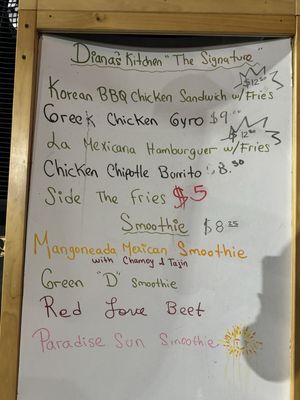 Diana's Kitchen "The Signature"
$12.50
Korean BBQ Chicken Sandwich w/ Fries
Greek Chicken Gyro $9.
$12.50
La Mexicana Hamburguer w/ Fries
Chicken Chipotle Borrito $8.50
Side The Fries $5
Smoothie $8.25
Mangoneada Mexican Smoothie
with Chamoy & Tajin
Green "D" Smoothie
Red Love Beet
Paradise Sun Smoothie